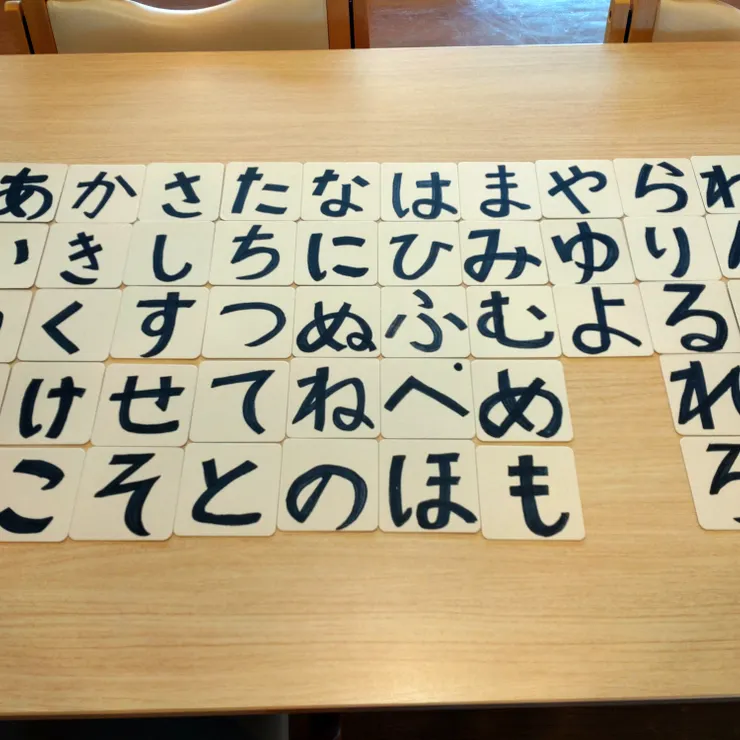 あ か さ た な は ま や ら わ
き し ち に ひ み ゆ り
く す つ ぬ ふ む よ る
け せ て ね へ め れ
こ そ と の ほ も ろ